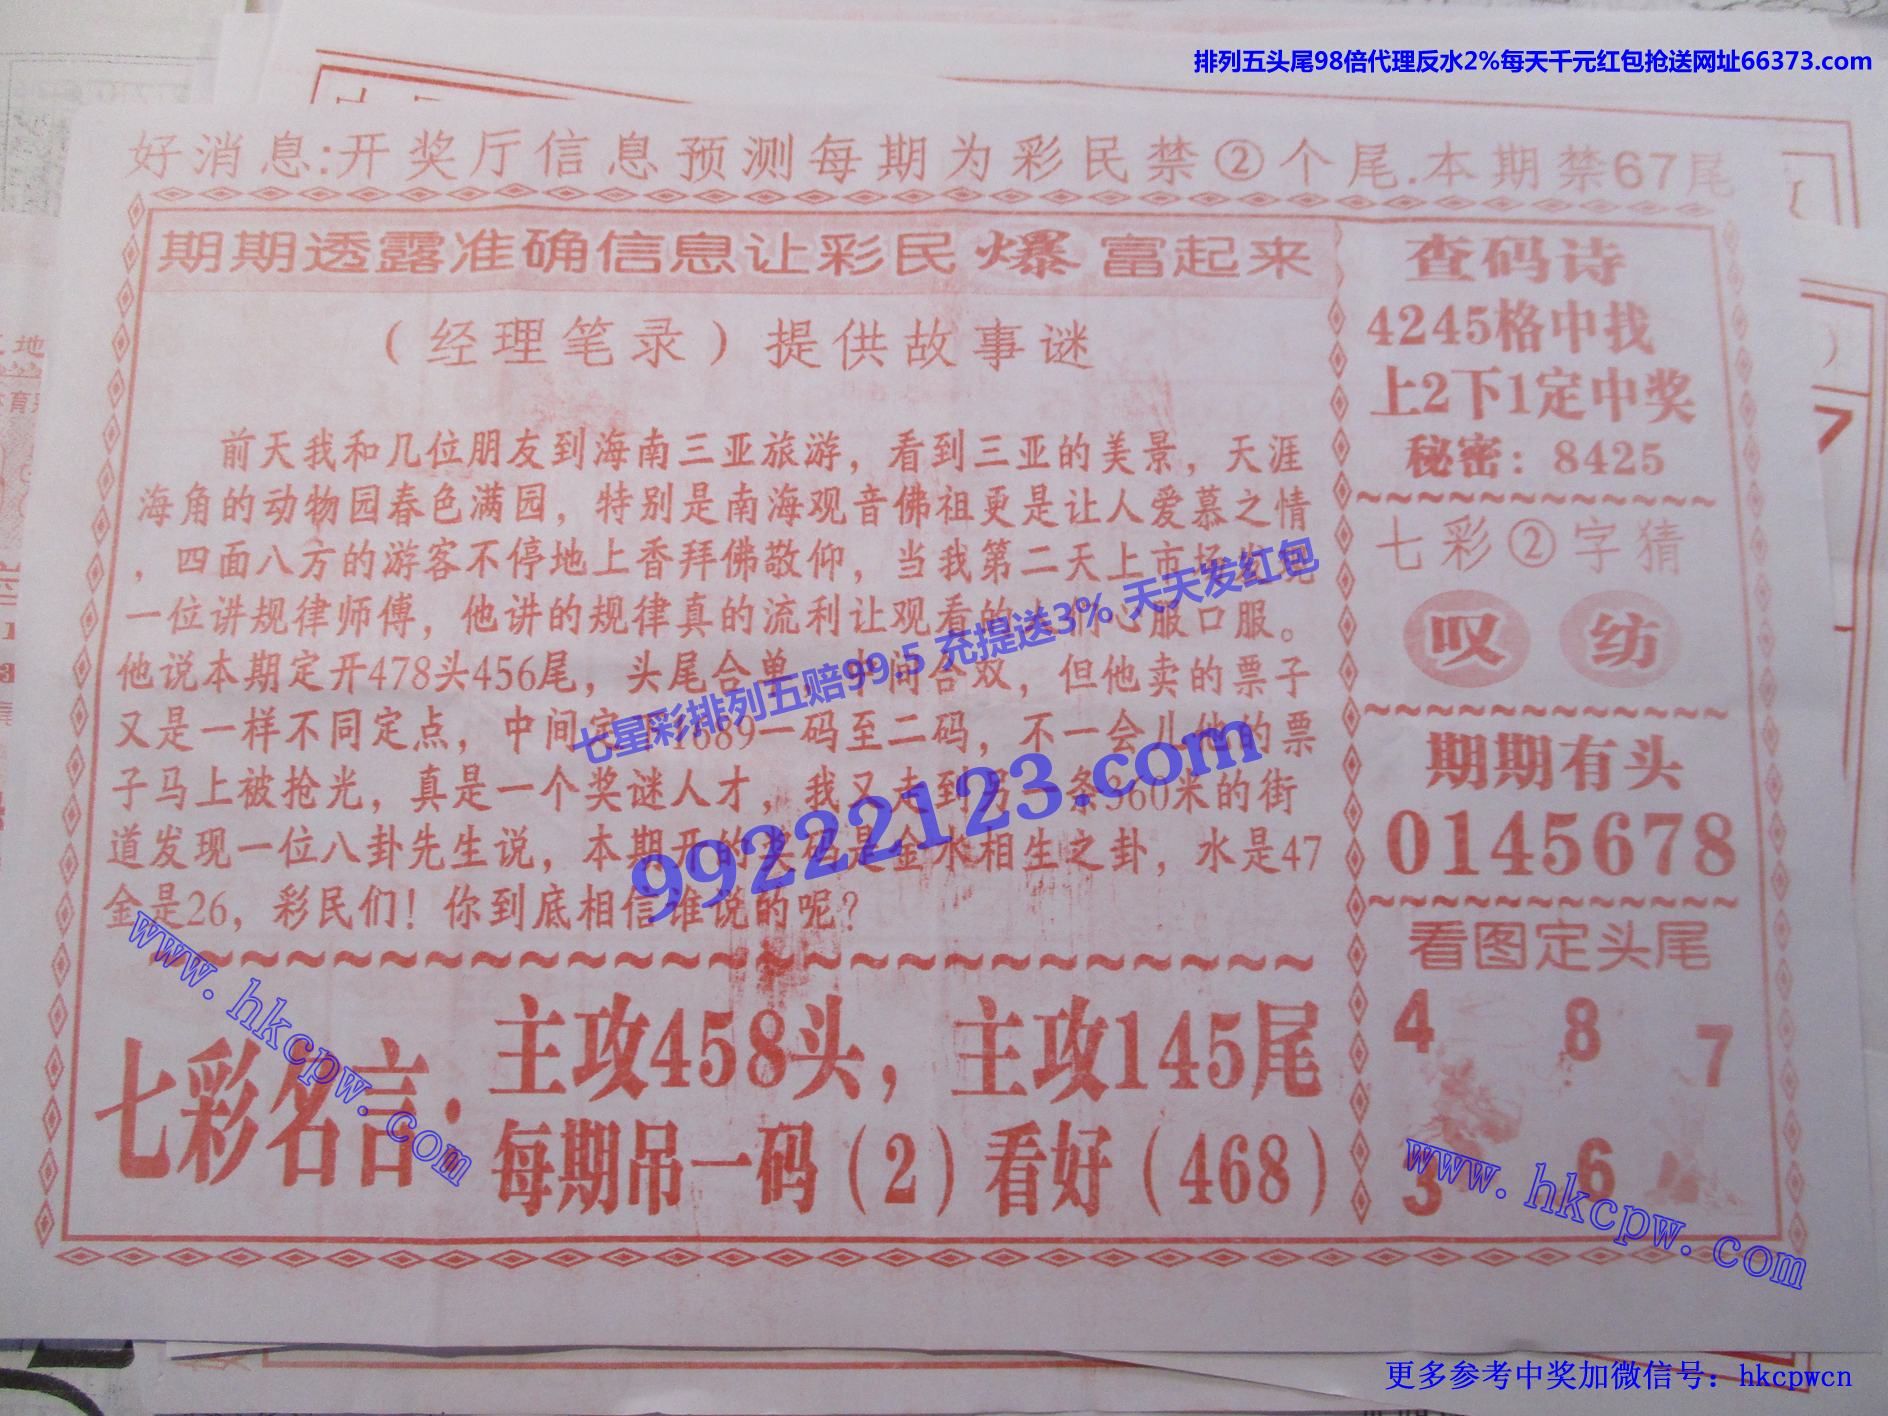 排列五头尾98倍代理反水2%每天千元红包抢送网址66373.com
好消息:开奖厅信息预测每期为彩民禁②个尾.本期禁67尾
期期透露准确信息让彩民爆富起来
（经理笔录）提供故事谜
前天我和几位朋友到海南三亚旅游，看到三亚的美景，天涯
海角的动物园春色满园，特别是南海观音佛祖更是让人爱慕之情
，四面八方的游客不停地上香拜佛敬仰，当我第二天上市场发现
一位讲规律师傅，他讲的规律真的流利让观看的人们心服口服。
他说本期定开478头456尾，头尾合单，中间合双，但他卖的票子
又是一样不同定点，中间定 1689一码至二码，不一会儿他的票
子马上被抢光，真是一个奖谜人才，我又走到另一条360米的街
道发现一位八卦先生说，本期开的奖码是金水相生之卦，水是47
金是26，彩民们！你到底相信谁说的呢？
七彩名言：
主攻458头，主攻145尾
每期吊一码（2）看好（468）
查码诗
4245格中找
上2下1定中奖
秘密：8425
七彩②字猜
叹 纺
期期有头
0145678
看图定头尾
4 8 7
3 6
七星彩排列五赔99.5 充提送3% 天天发红包
99222123.com
www.hkcpw.com
www.hkcpw.com
更多参考中奖加微信号：hkcpwcn